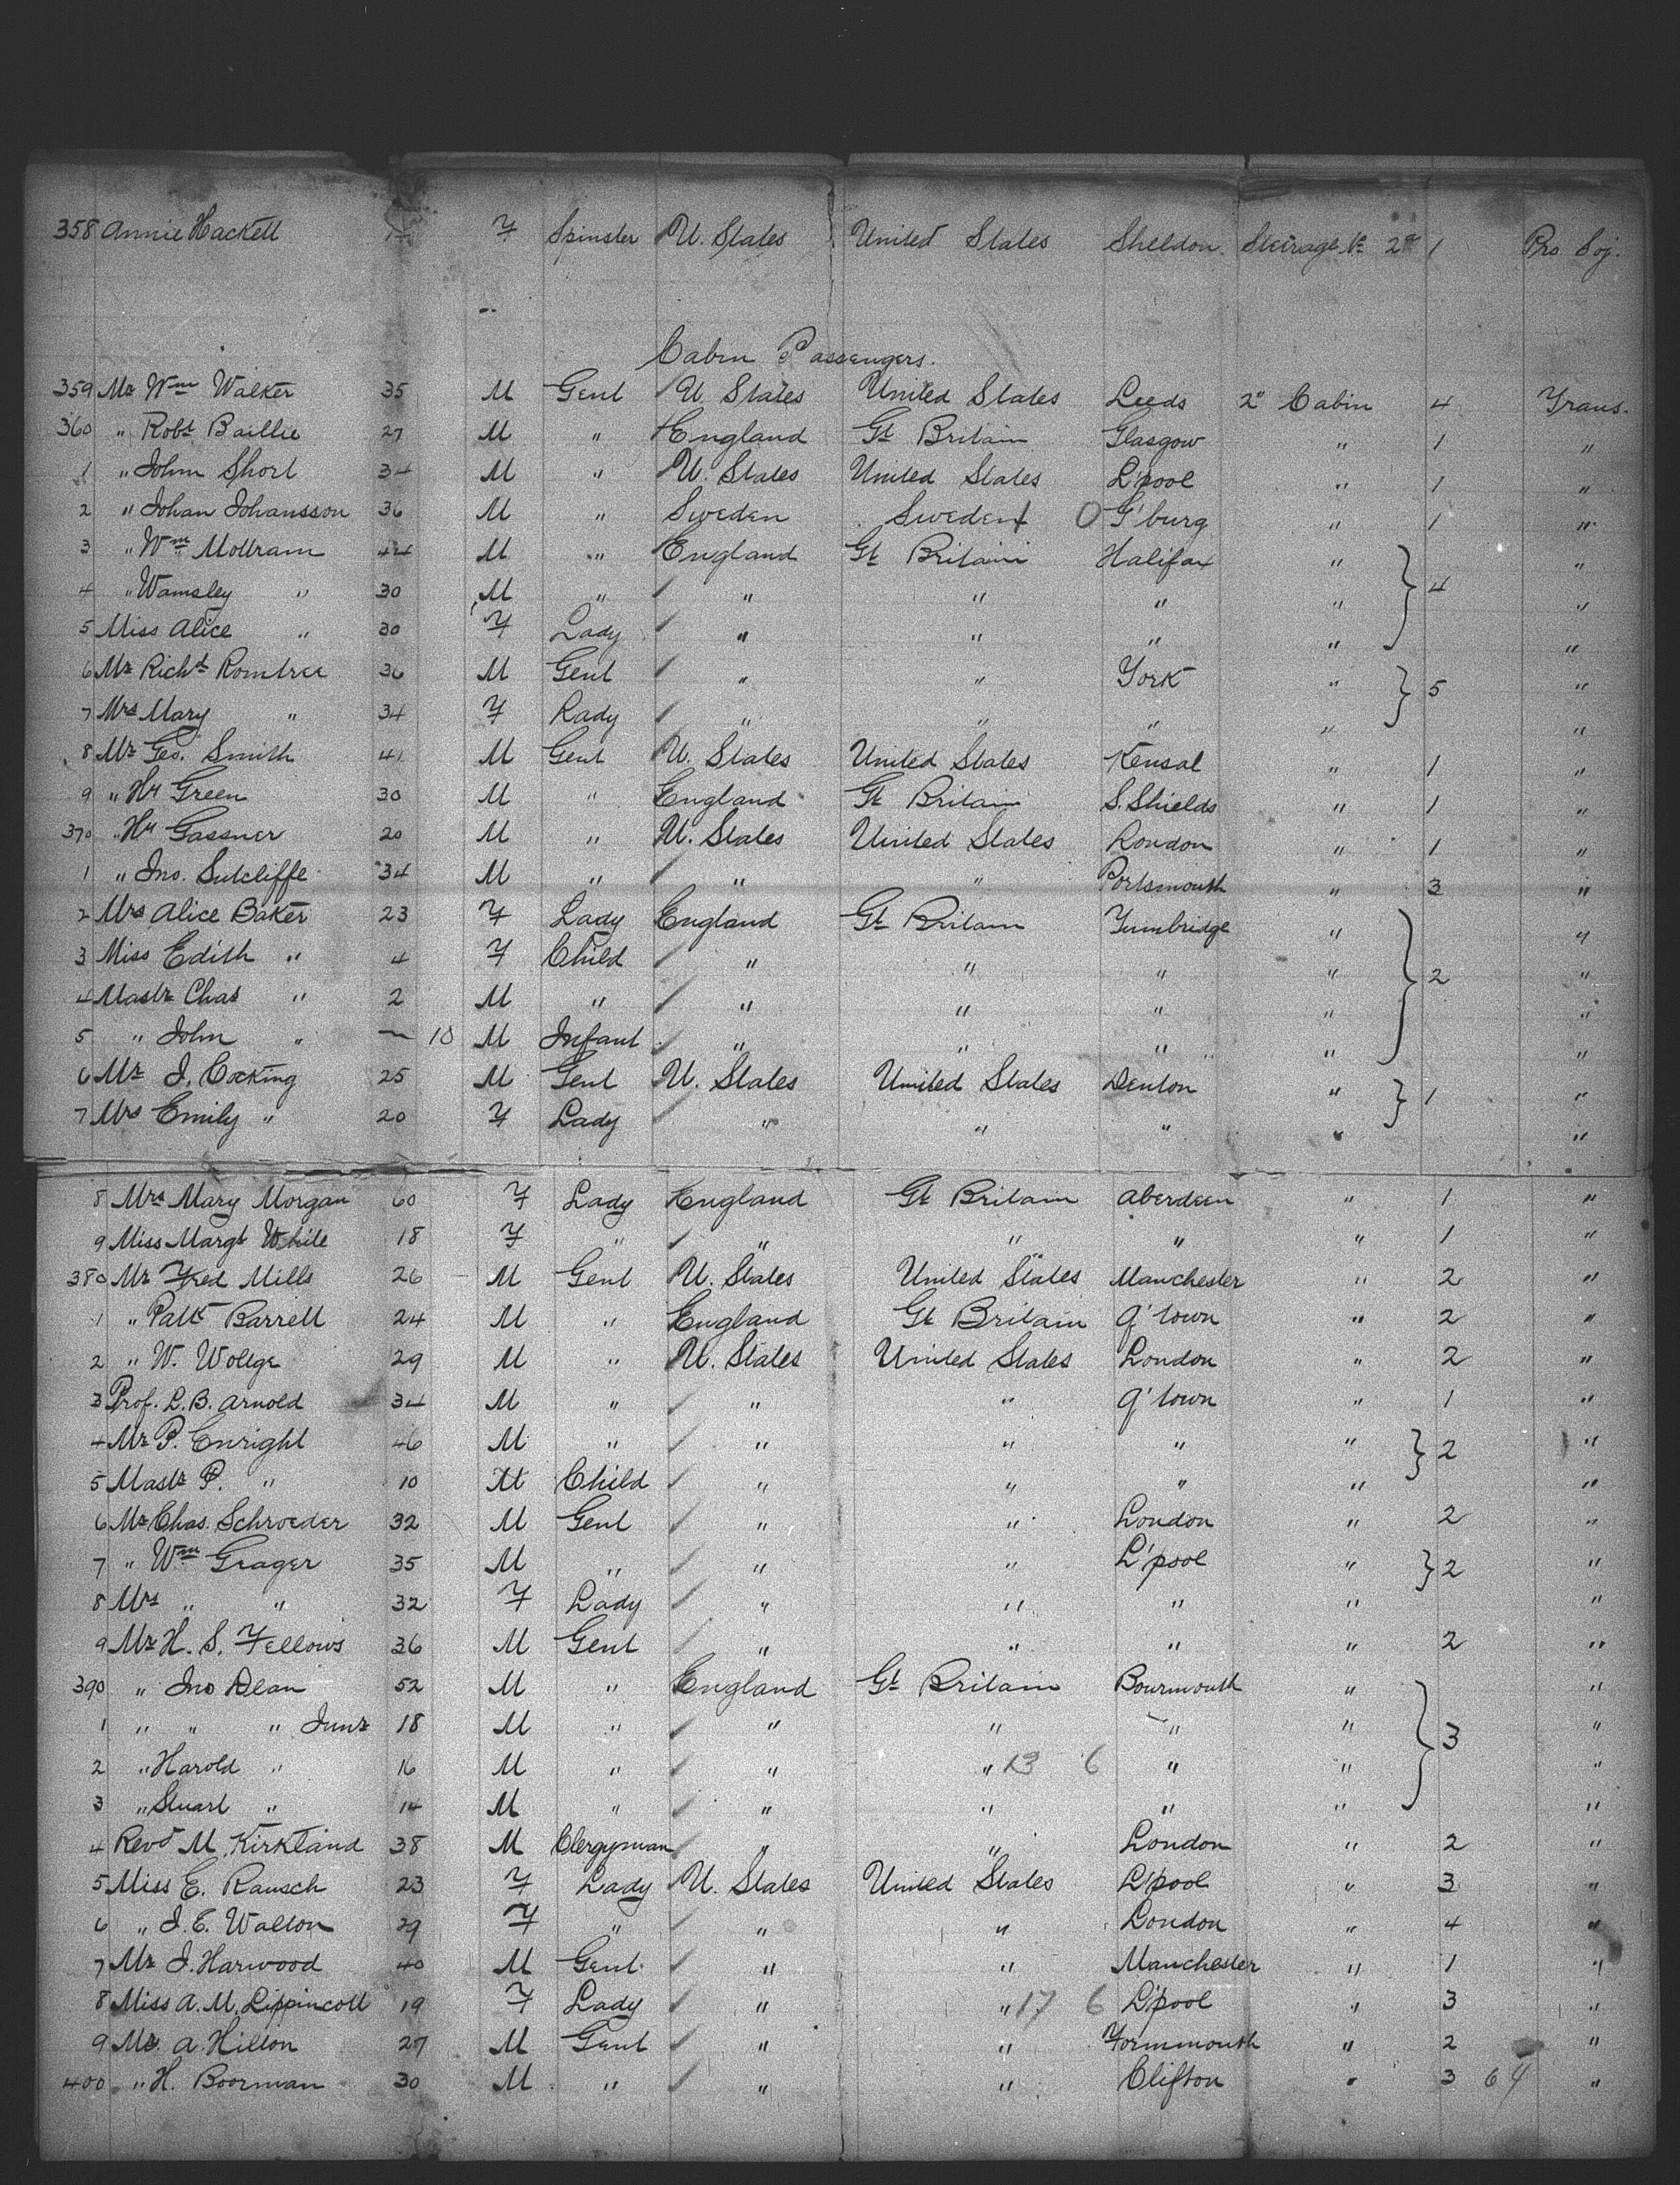 358 Annie Hackett F Spinster U. States United States Sheldon. Steirage 1 Pro Soj.
Cabin Passengers.
359 Mr Wm Walker 35 M Gent U. States United States Leeds 2" Cabin 4 Trans.
360 " Robt Baillie 27 M " England Gt Britain Glasgow " 1 "
1 " John Short 34 M " U. States United States L'pool " 1 "
2 " Johan Johansson 36 M " Sweden Sweden O G'burg " 1 "
3 " Wm Mottram 44 M " England Gt Britain Halifax " "
4 " Wamsley " 30 M " " " " " 4 "
5 Miss Alice " 30 F Lady " " " " "
6 Mr Richd Romtree 36 M Gent " " York " 5 "
7 Mrs Mary " 34 F Lady " " " " "
8 Mr Geo. Smith 41 M Gent U. States United States Kensal " 1 "
9 " Hy Green 30 M " England Gt Britain S. Shields " 1 "
370 " Hy Gassner 20 M " U. States United States London " 1 "
1 " Jno. Sutcliffe 34 M " " " Portsmouth " 3 "
2 Mrs Alice Baker 23 F Lady England Gt Britain Tumbridge " "
3 Miss Edith " 4 F Child " " " " 2 "
4 Mastr Chas " 2 M " " " " " "
5 " John " — 10 M Infant " " " " "
6 Mr J. Cocking 25 M Gent U. States United States Denton " 1 "
7 Mrs Emily " 20 F Lady " " " " "
8 Mrs Mary Morgan 60 F Lady England Gt Britain Aberdeen " 1 "
9 Miss Margt White 18 F " " " " " 1 "
380 Mr Fred Mills 26 M Gent U. States United States Manchester " 2 "
1 " Patk Barrett 24 M " England Gt Britain Q'town " 2 "
2 " W. Woltge 29 M " U. States United States London " 2 "
3 Prof. L. B. Arnold 34 M " " " Q'town " 1 "
4 Mr P. Enright 46 M " " " " " 2 "
5 Mastr P. " 10 M Child " " " " "
6 Mr Chas. Schroeder 32 M Gent " " London " 2 "
7 " Wm Grager 35 M " " " L'pool " 2 "
8 Mrs " " 32 F Lady " " " " "
9 Mr H. S. Fellows 36 M Gent " " " " 2 "
390 " Jno Dean 52 M " England Gt Britain Bourmouth " "
1 " " " Junr 18 M " " " " " 3 "
2 " Harold " 16 M " " " 13 6 " " "
3 " Stuart " 14 M " " " " " "
4 Revd M. Kirkland 38 M Clergyman " " London " 2 "
5 Miss E. Rausch 23 F Lady U. States United States L'pool " 3 "
6 " J. E. Walton 29 F " " " London " 4 "
7 Mr J. Harwood 40 M Gent " " Manchester " 1 "
8 Miss A. M. Lippincott 19 F Lady " " 17 6 L'pool " 3 "
9 Mr. A. Hilton 27 M Gent " " Yormmouth " 2 "
400 " H. Boorman 30 M " " " Clifton " 3 64 "